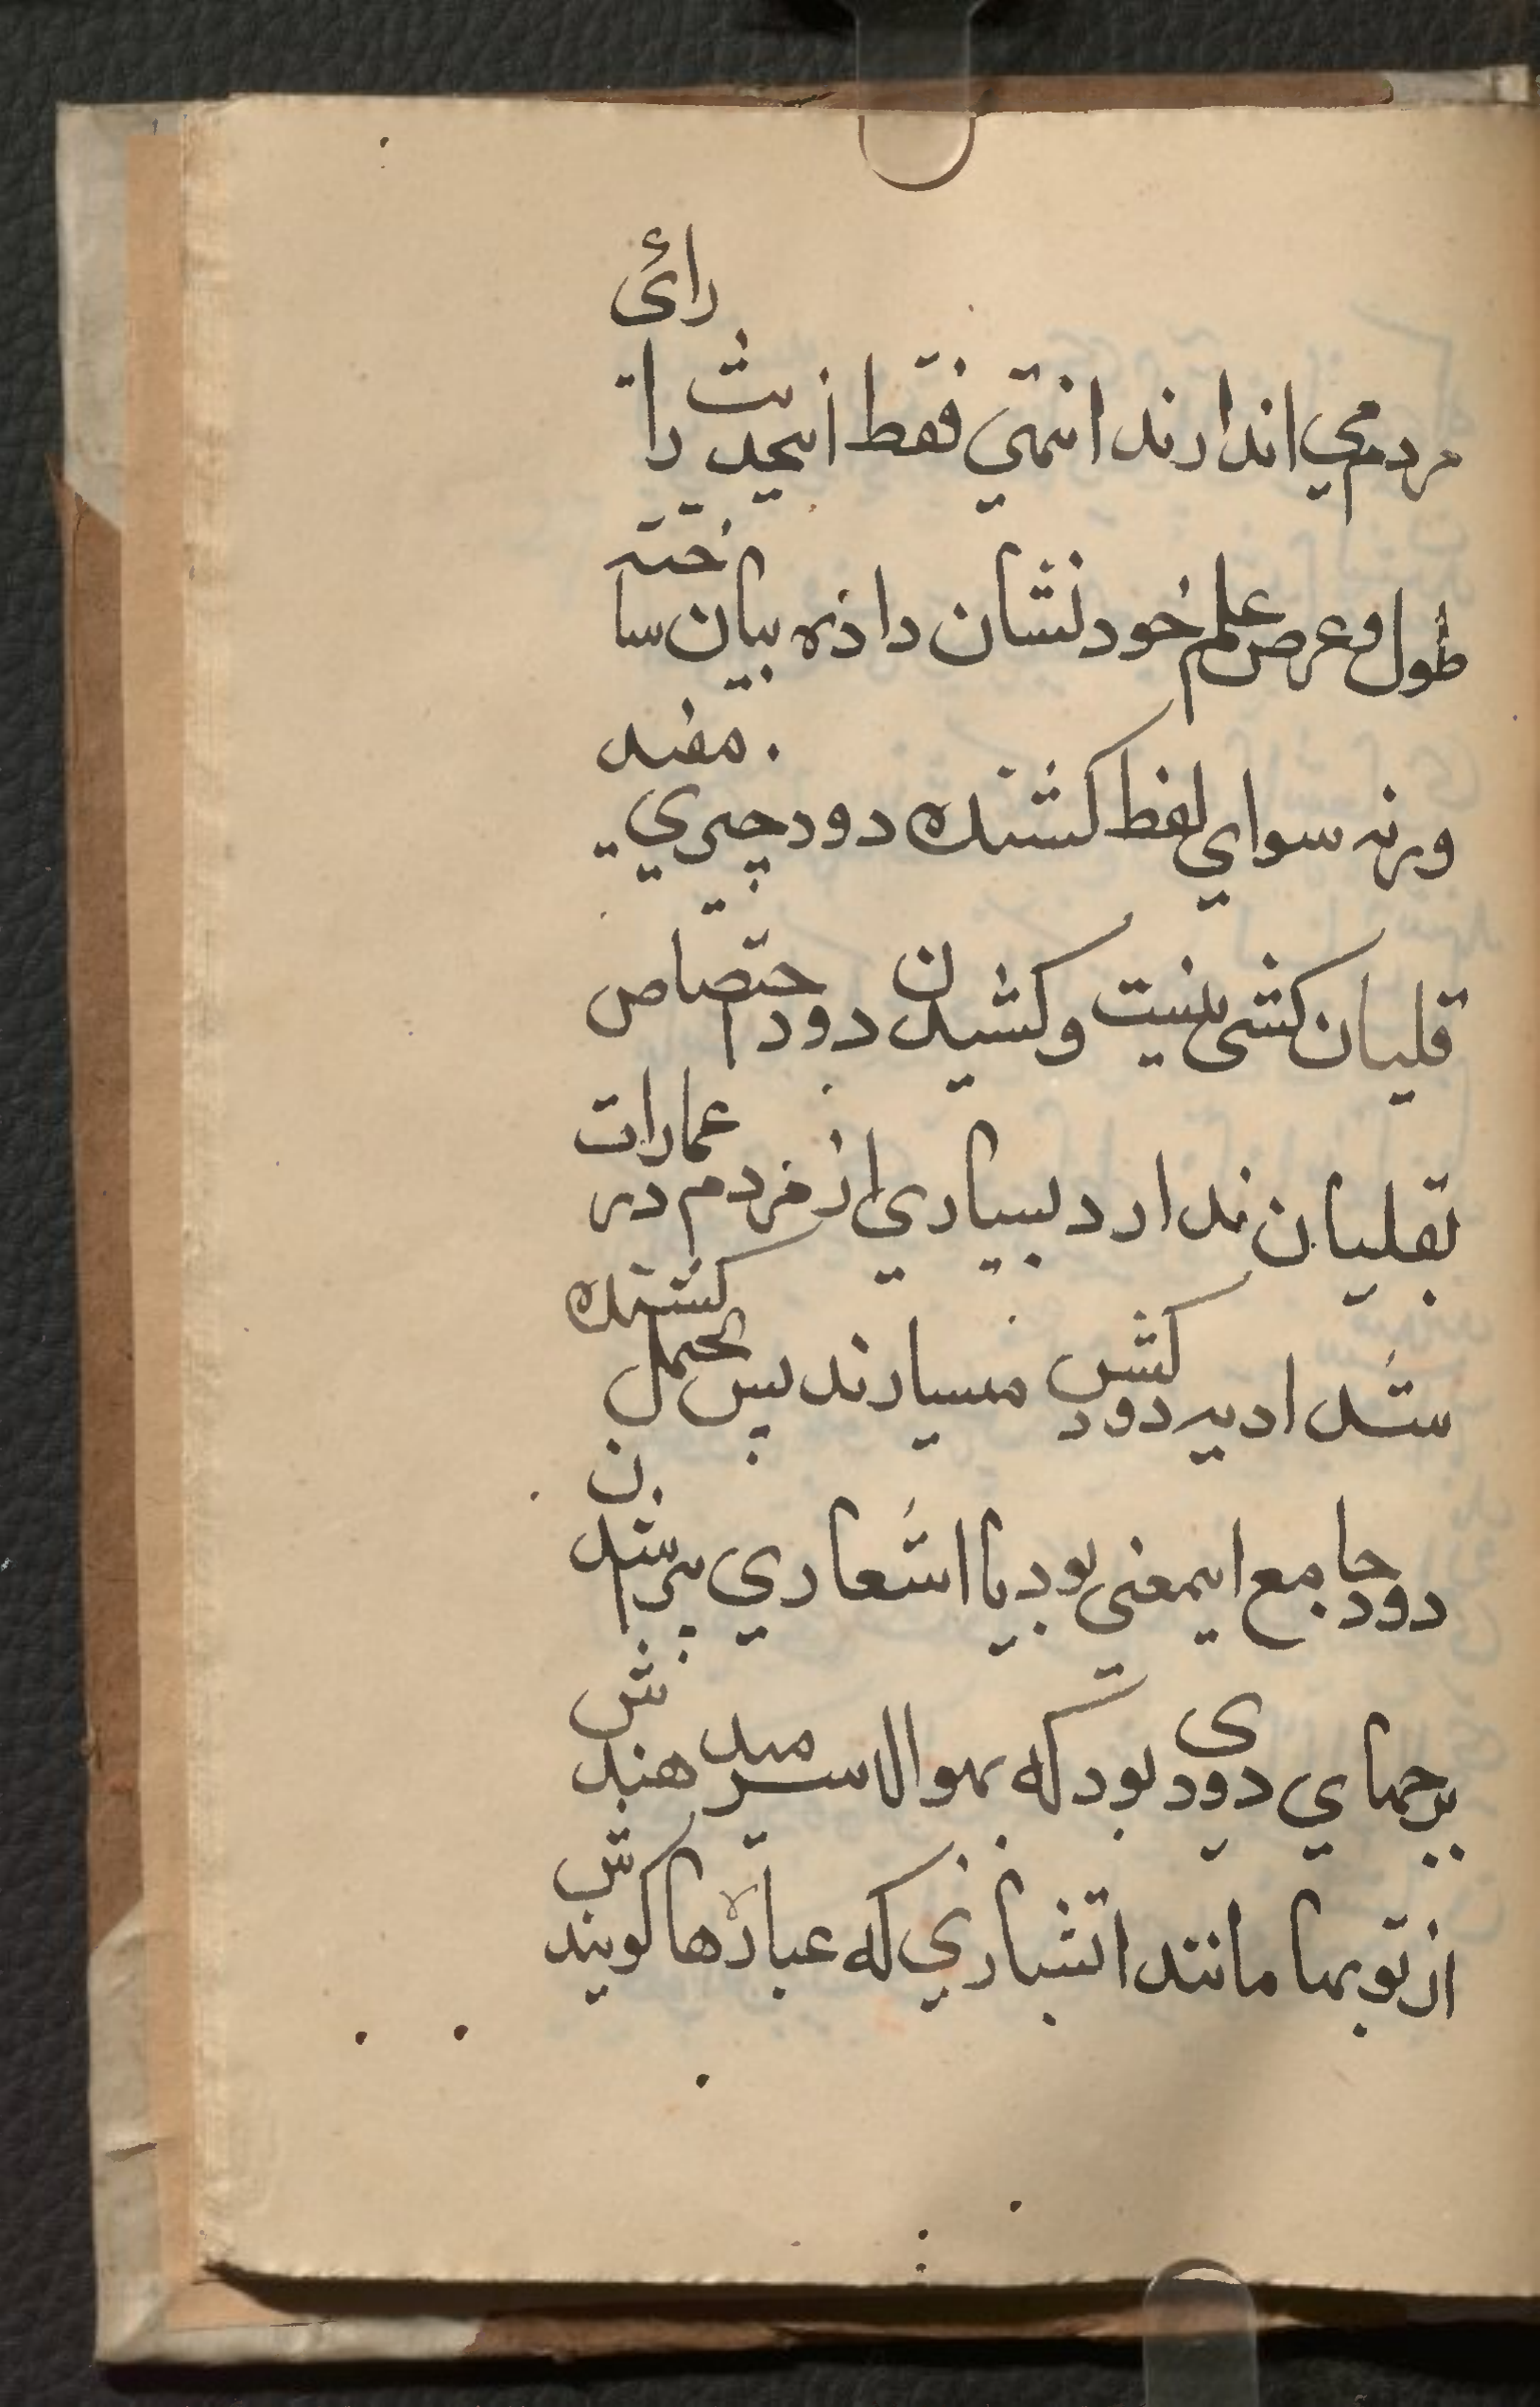 مردمي اندارند انتمي فقط ازیحدیث را رائ
طول و عرض علم خود نشان داده بیان ساخته
ورنه سواي لفظ کشنده دود چیزي مفید
قلیان کشی نیست و کشیدن دود اختصاص
بقلیان ندارد بسیاري از مردم در عمارات
شد ادیه دودکش میسازند پس محتمل کشنده
دود جامع اینمعنی بود یا اشعاري بر شدن
برجهاي دودی بود که بهوا سر میدهند ش
از توپها مانند اتشبازي که عبارها کویند ش